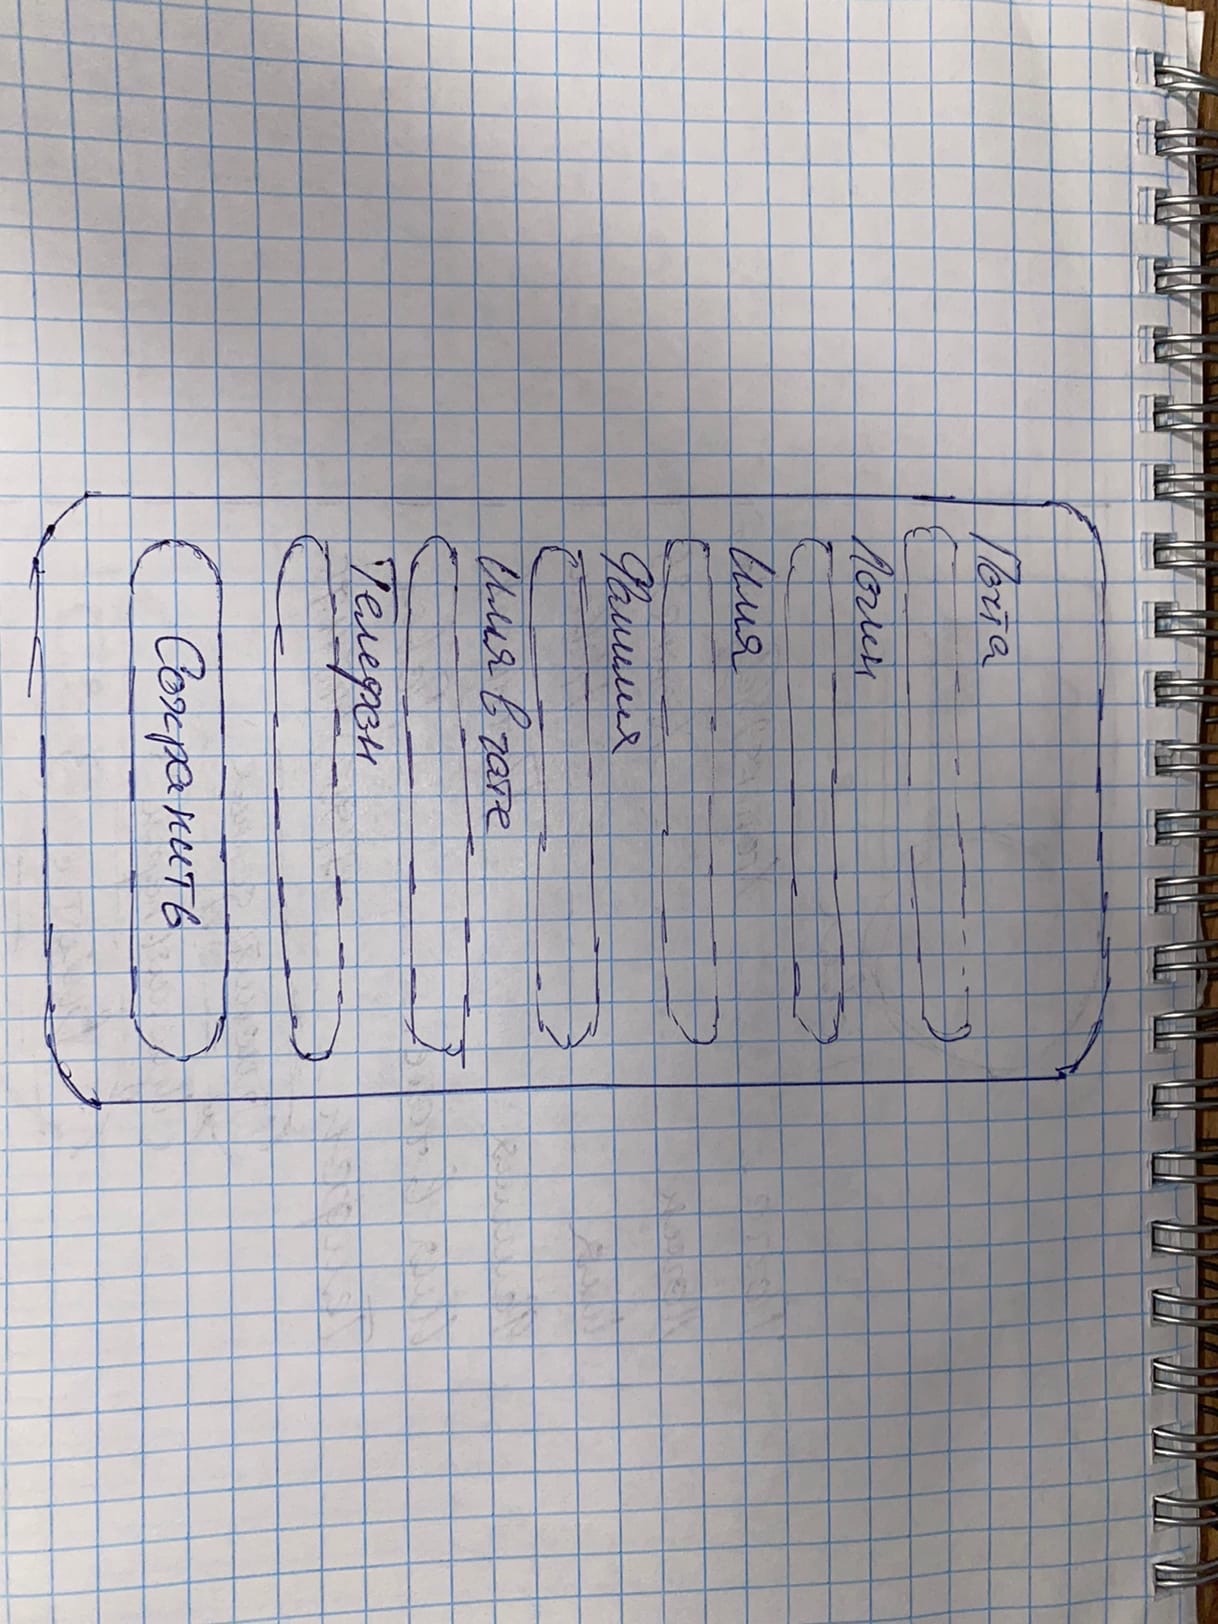 Почта
Логин
Имя
Фамилия
Имя в чате
Телефон
Сохранить